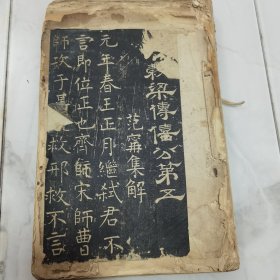 梁傳僖公第五
范甯集解
元年春王正月繼弑君不
言即位正也齊師宋師曹
師次于救邢救不言